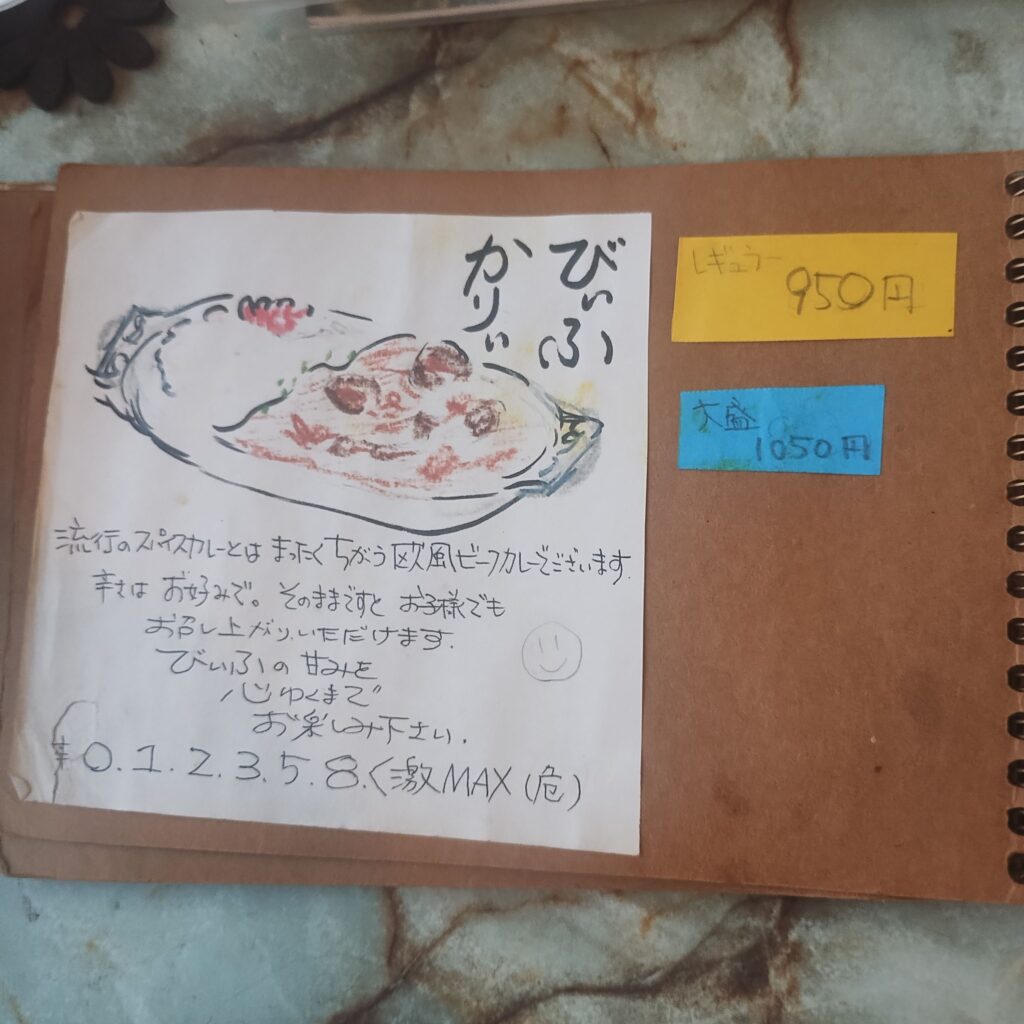 びぃふ
かりぃ
流行のスパイスカレーとは まったくちがう欧風ビーフカレーでございます.
辛さは お好みで。そのままですと お子様でも
お召し上がりいただけます.
びぃふの甘みを
心ゆくまで
お楽しみ下さい.
辛 0.1.2.3.5.8.く激MAX(危)
レギュラー
950円
大盛
1050円